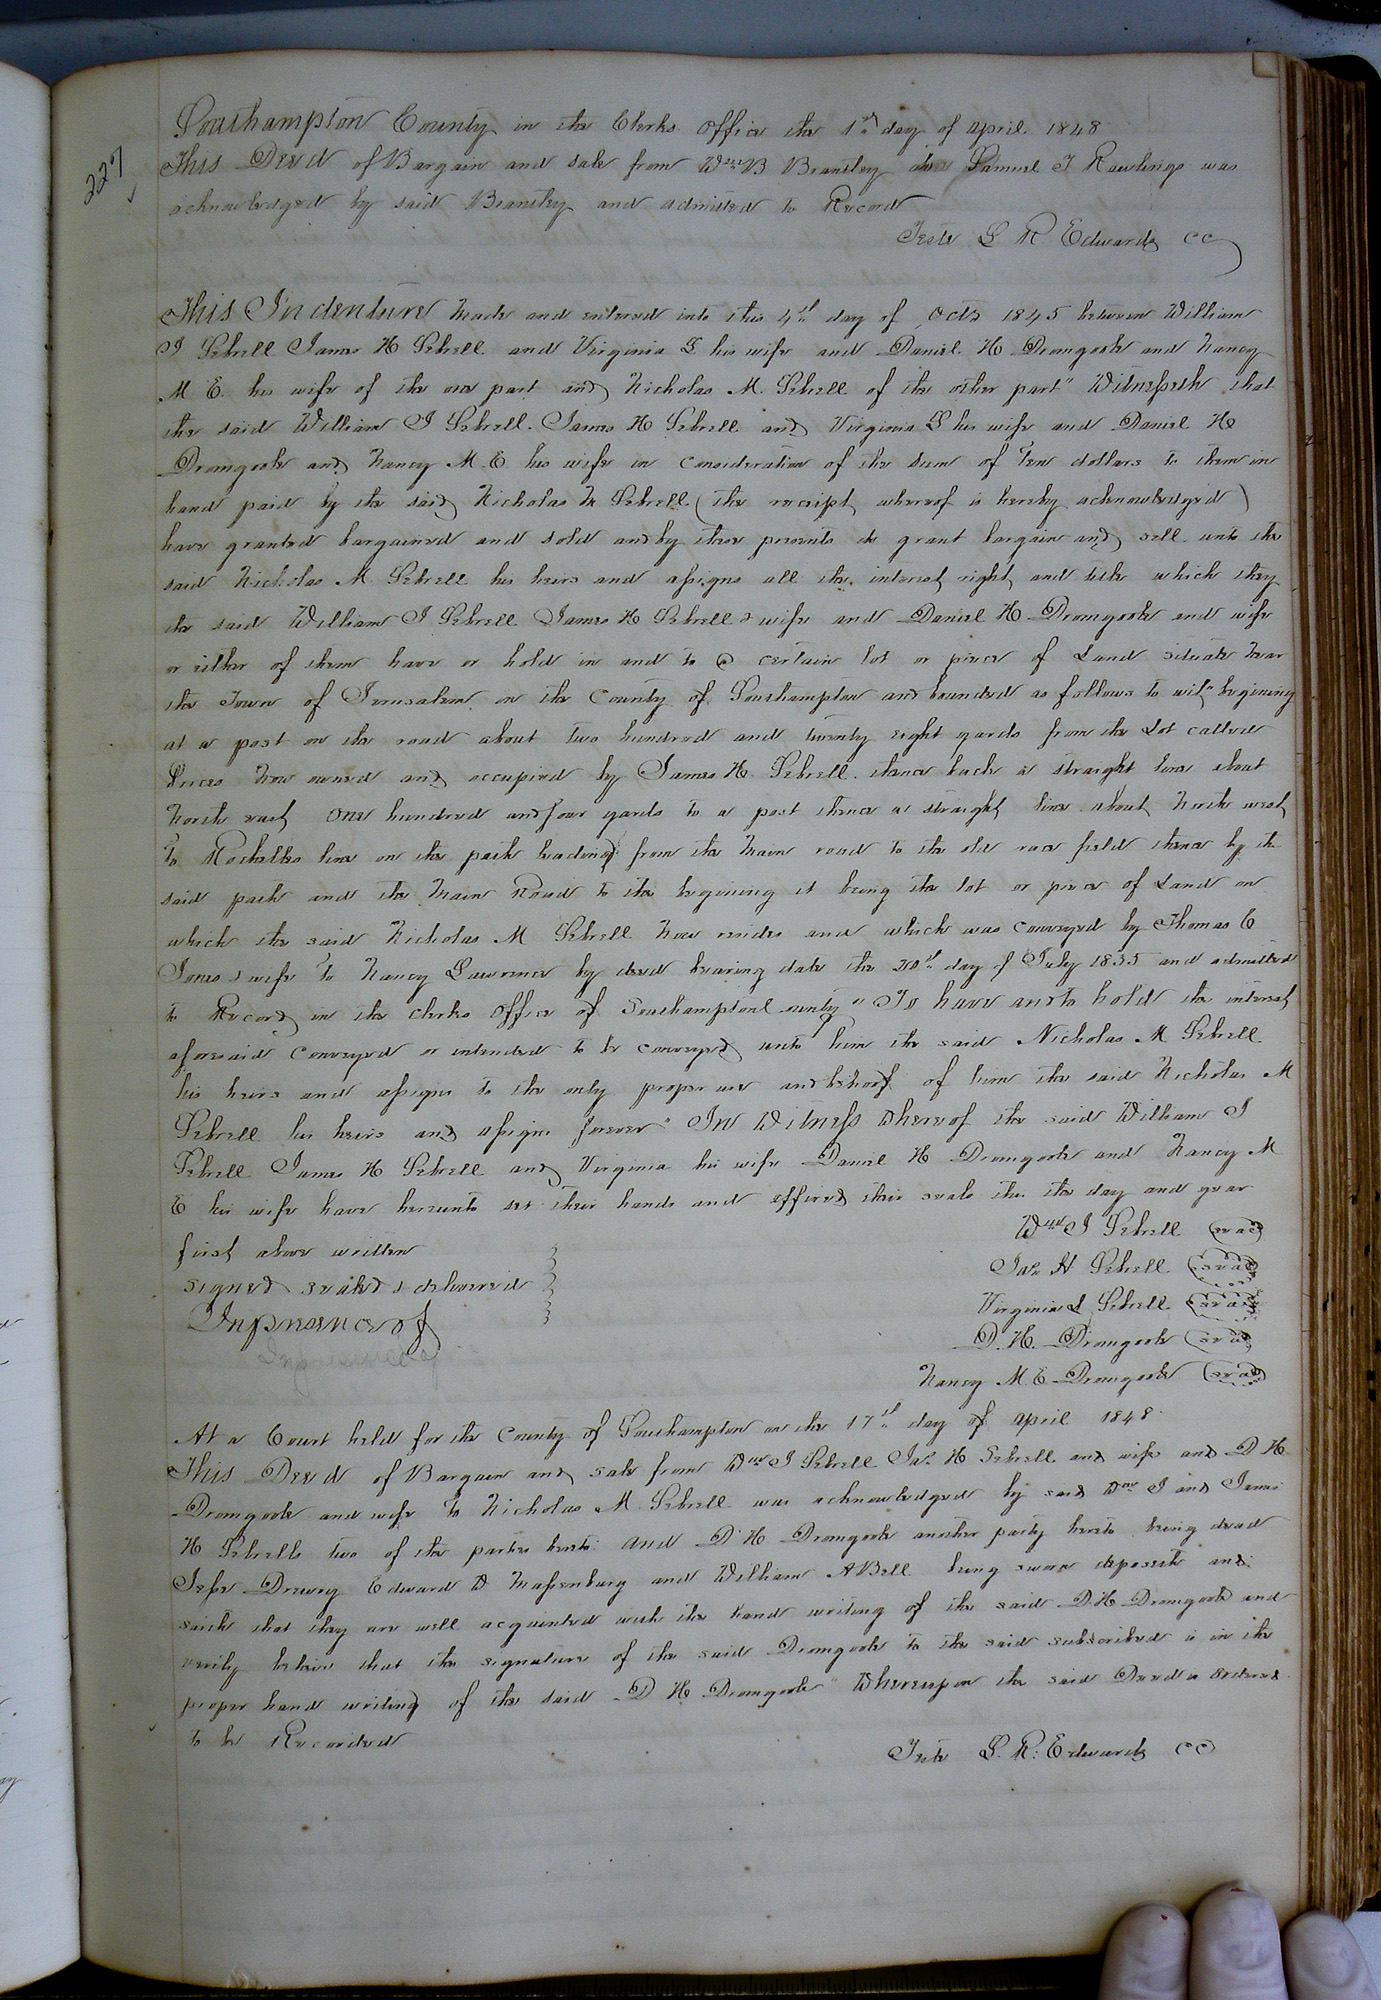 227
Southampton County in the Clerks office the 1st day of april 1848
This Deed of Bargain and sale from Wm B Brantley to Samuel T Rawlings was
acknowledged by said Brantley and admitted to Record
Teste L R Edwards CC
This Indenture made and entered into this 4th day of Octr 1845 between William
J Sebrell James H Sebrell and Virginia L his wife and Daniel H Dromgoole and Nancy
M E. his wife of the one part and Nicholas M. Sebrell of the other part" Witnesseth that
the said William J Sebrell. James H Sebrell and Virginia L his wife and Daniel H
Dromgoole and Nancy M. E his wife in consideration of the sum of Ten dollars to them in
hand paid by the said Nicholas M Sebrell (the receipt whereof is hereby acknowledged)
have granted bargained and sold and by these presents do grant bargain and sell unto the
said Nicholas M Sebrell his heirs and assigns all the interest right and title which they
the said William J Sebrell James H Sebrell & wife and Daniel H Dromgoole and wife
or either of them have or hold in and to a certain lot or piece of Land situate near
the Town of Jerusalem in the County of Southampton and bounded as follows to wit" begining
at a post on the road about two hundred and twenty eight yards from the Lot called
now owned and occupied by James H. Sebrell. thence back a straight line about
North east one hundred and four yards to a post thence a straight line about North west
To Rochelles line on the path leading from the main road to the old race field thence by the
said path and the Main Road to the begining it being the lot or piece of Land on
which the said Nicholas M Sebrell now resides and which was conveyed by Thomas C
Jones & wife To Nancy Lawrence by deed bearing date the 20th day of July 1835 and admitted
to Record in the clerks office of Southampton County" To have and to hold the interest
aforesaid conveyed or intended to be conveyed unto him the said Nicholas M Sebrell
his heirs and assigns to the only proper use and behoof of him the said Nicholas M
Sebrell his heirs and assigns forever" In Witness Whereof the said William J
Sebrell James H Sebrell and Virginia his wife Daniel H Dromgoole and Nancy M
E his wife have hereunto set their hands and affixed their seals the the day and year
first above written
Wm J Sebrell (seal)
signed sealed & delivered
Jas H Sebrell (seal)
In presence of
Virginia L Sebrell (seal)
In presence of
D. H. Dromgoole (seal)
Nancy M. E Dromgoole (seal)
At a Court held for the County of Southampton on the 17th day of april 1848
This Deed of Bargain and sale from Wm J Sebrell Jas H Sebrell and wife and D H
Dromgoole and wife To Nicholas M. Sebrell was acknowledged by said Wm J and James
H Sebrells two of the parties hereto and D H Dromgoole another party hereto being dead
Jesse Drewry Edward D Massenburg and William A Bell being sworn deposeth and
saith that they are well acquainted with the hand writing of the said D. H Dromgoole and
verily believe that the signature of the said Dromgoole to the said subscribed is in the
proper hand writing of the said D H Dromgoole" Whereupon the said Deed is ordered
to be Recorded
Teste L. R. Edwards CC